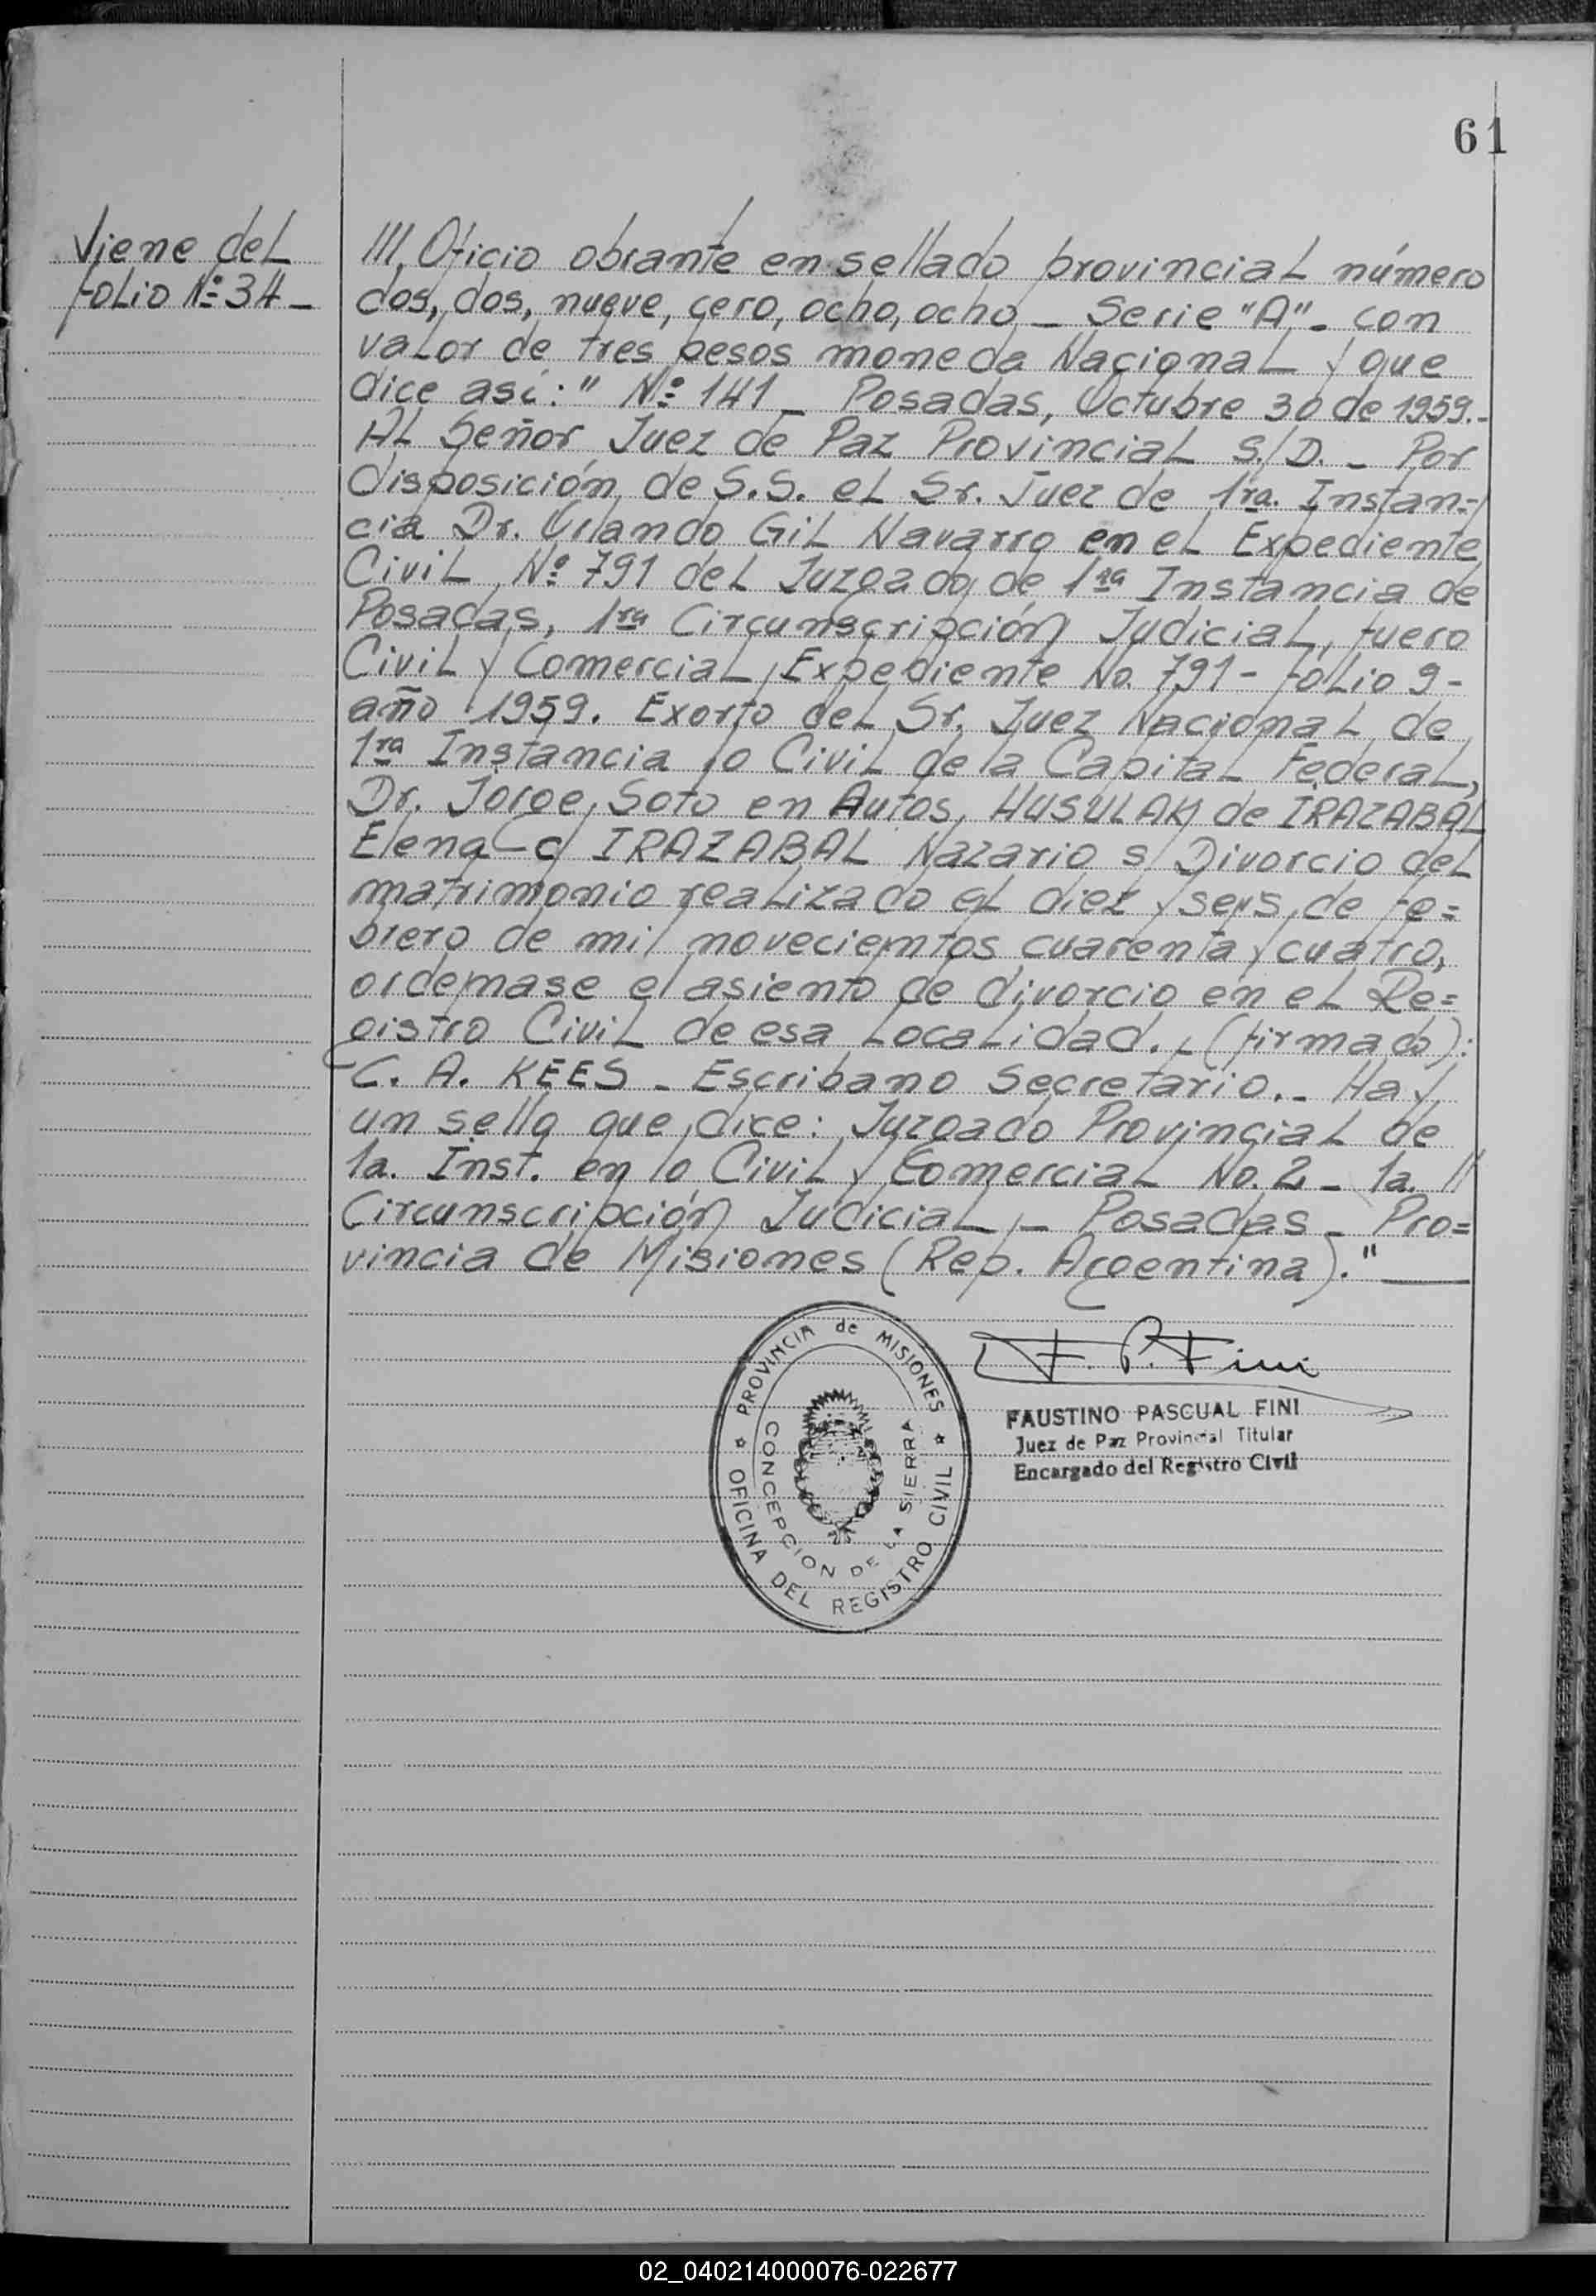 61
Viene del
folio Nº 34 _
/// Oficio obrante en sellado provincial número
dos, dos, nueve, cero, ocho, ocho _ Serie "A" _ con
valor de tres pesos moneda Nacional y que
dice así: " Nº 141 _ Posadas, Octubre 30 de 1959.-
Al Señor Juez de Paz Provincial S./D. _ Por
disposición de S.S. el Sr. Juez de 1ra. Instan=
cia Dr. Orlando Gil Navarro en el Expediente
Civil Nº 791 del Juzgado de 1ra Instancia de
Posadas, 1ra Circunscripción Judicial, fuero
Civil y Comercial, Expediente No. 791 - folio 9 -
año 1959. Exorto del Sr. Juez Nacional de
1ra Instancia lo Civil de la Capital Federal,
Dr. Jorge Soto en Autos, HUSULAK de IRAZABAL
Elena c/ IRAZABAL Nazario s/ Divorcio del
matrimonio realizado el diez y seis de fe=
brero de mil novecientos cuarenta y cuatro,
ordemase el asiento de divorcio en el Re=
gistro Civil de esa Localidad. _ (firmado):
C. A. KEES _ Escribano Secretario. _ Hay
un sello que dice: Juzgado Provincial de
1a. Inst. en lo Civil y Comercial No. 2 _ 1a. //
Circunscripción Judicial _ Posadas _ Pro=
vincia de Misiones (Rep. Argentina)."
PROVINCIA de MISIONES
CONCEPCION DE LA SIERRA
OFICINA DEL REGISTRO CIVIL
F. P. Fini
FAUSTINO PASCUAL FINI
Juez de Paz Provincial Titular
Encargado del Registro Civil
02_040214000076-022677